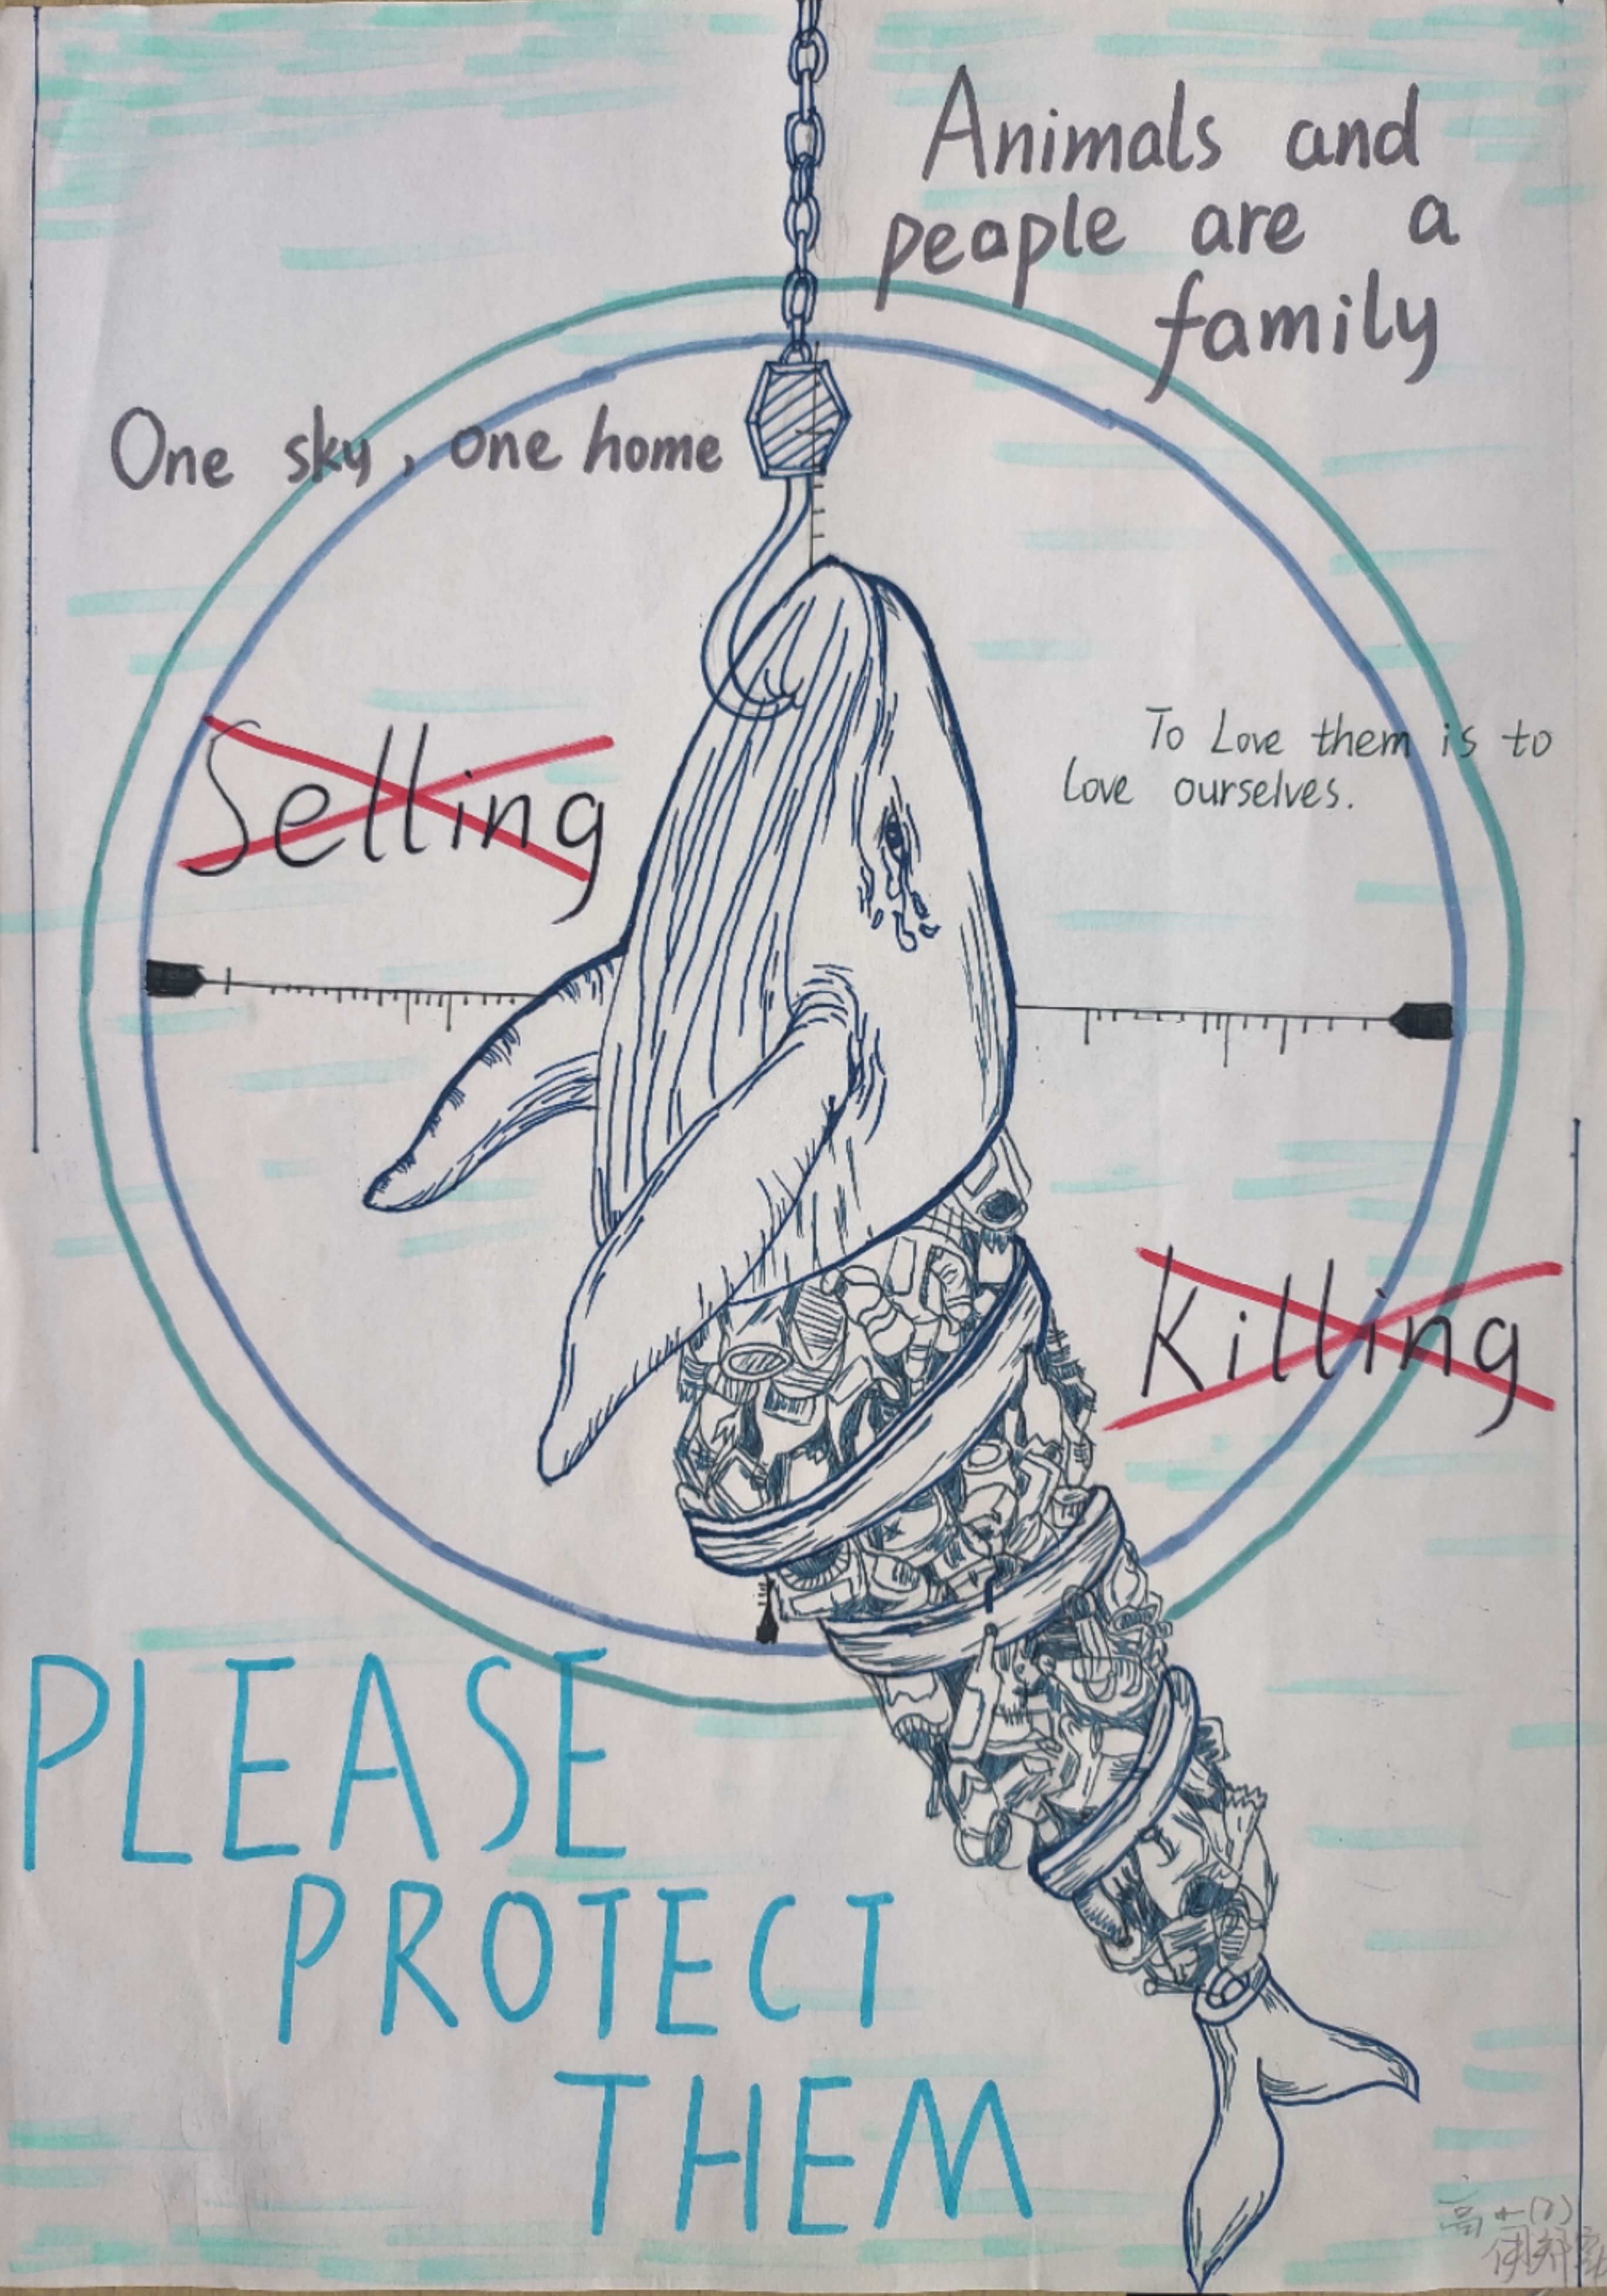 Animals and
people are a
family
One sky, one home
Selling
To Love them is to
love ourselves.
Killing
PLEASE
PROTECT
THEM